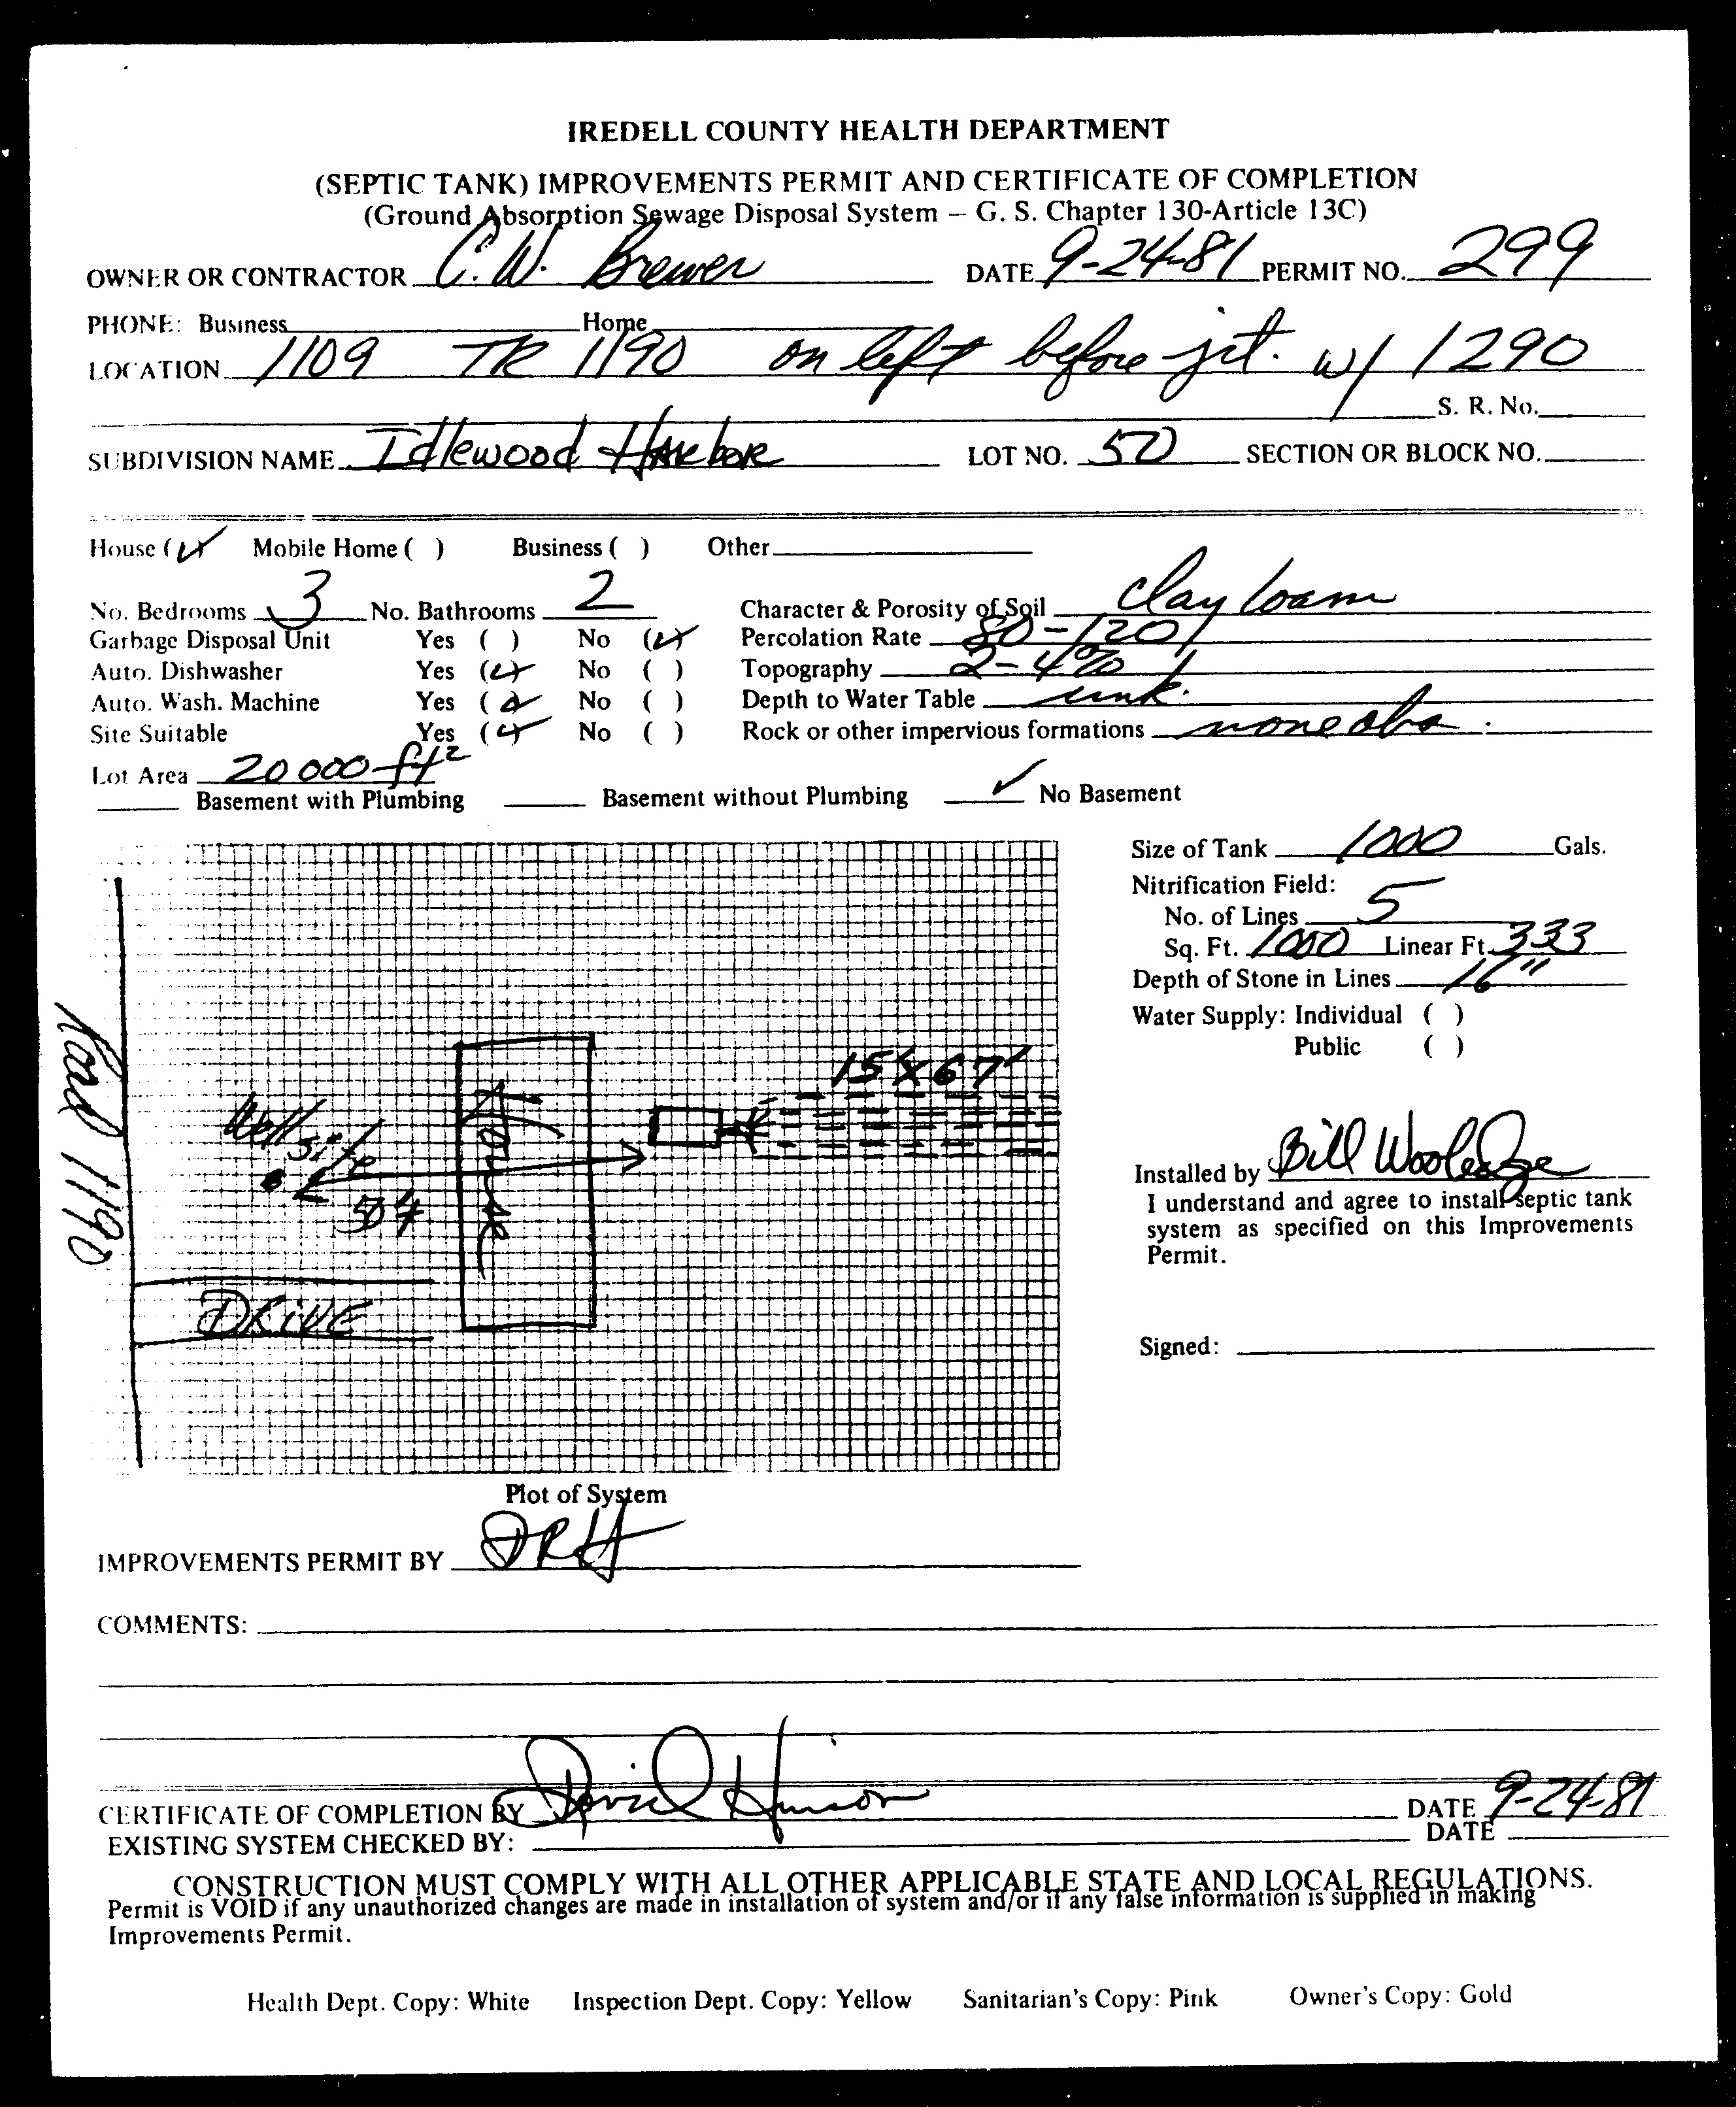 IREDELL COUNTY HEALTH DEPARTMENT
(SEPTIC TANK) IMPROVEMENTS PERMIT AND CERTIFICATE OF COMPLETION
(Ground Absorption Sewage Disposal System – G. S. Chapter 130-Article 13C)
OWNER OR CONTRACTOR C. W. Brewer DATE 9-24-81 PERMIT NO. 299
PHONE: Business Home
LOCATION 1109 TR 1190 on left before jct. w/ 1290
S. R. No.
SUBDIVISION NAME Idlewood Harbor LOT NO. 50 SECTION OR BLOCK NO.
House (✓) Mobile Home ( ) Business ( ) Other
No. Bedrooms 3 No. Bathrooms 2 Character & Porosity of Soil clay loam
Garbage Disposal Unit Yes ( ) No (✓) Percolation Rate 80-120
Auto. Dishwasher Yes (✓) No ( ) Topography 2-4%
Auto. Wash. Machine Yes (✓) No ( ) Depth to Water Table unk.
Site Suitable Yes (✓) No ( ) Rock or other impervious formations none obs.
Lot Area 20000 ft²
Basement with Plumbing Basement without Plumbing ✓ No Basement
Size of Tank 1000 Gals.
Nitrification Field:
No. of Lines 5
Sq. Ft. 1000 Linear Ft. 333
Depth of Stone in Lines 16"
Water Supply: Individual ( )
Public ( )
Road 1190
Well site
House
15 X 67'
DRIVE
Installed by Bill Wooledge
I understand and agree to install septic tank
system as specified on this Improvements
Permit.
Signed:
Plot of System
IMPROVEMENTS PERMIT BY DRH
COMMENTS:
CERTIFICATE OF COMPLETION BY David Hinson DATE 9-24-81
EXISTING SYSTEM CHECKED BY: DATE
CONSTRUCTION MUST COMPLY WITH ALL OTHER APPLICABLE STATE AND LOCAL REGULATIONS.
Permit is VOID if any unauthorized changes are made in installation of system and/or if any false information is supplied in making
Improvements Permit.
Health Dept. Copy: White Inspection Dept. Copy: Yellow Sanitarian's Copy: Pink Owner's Copy: Gold